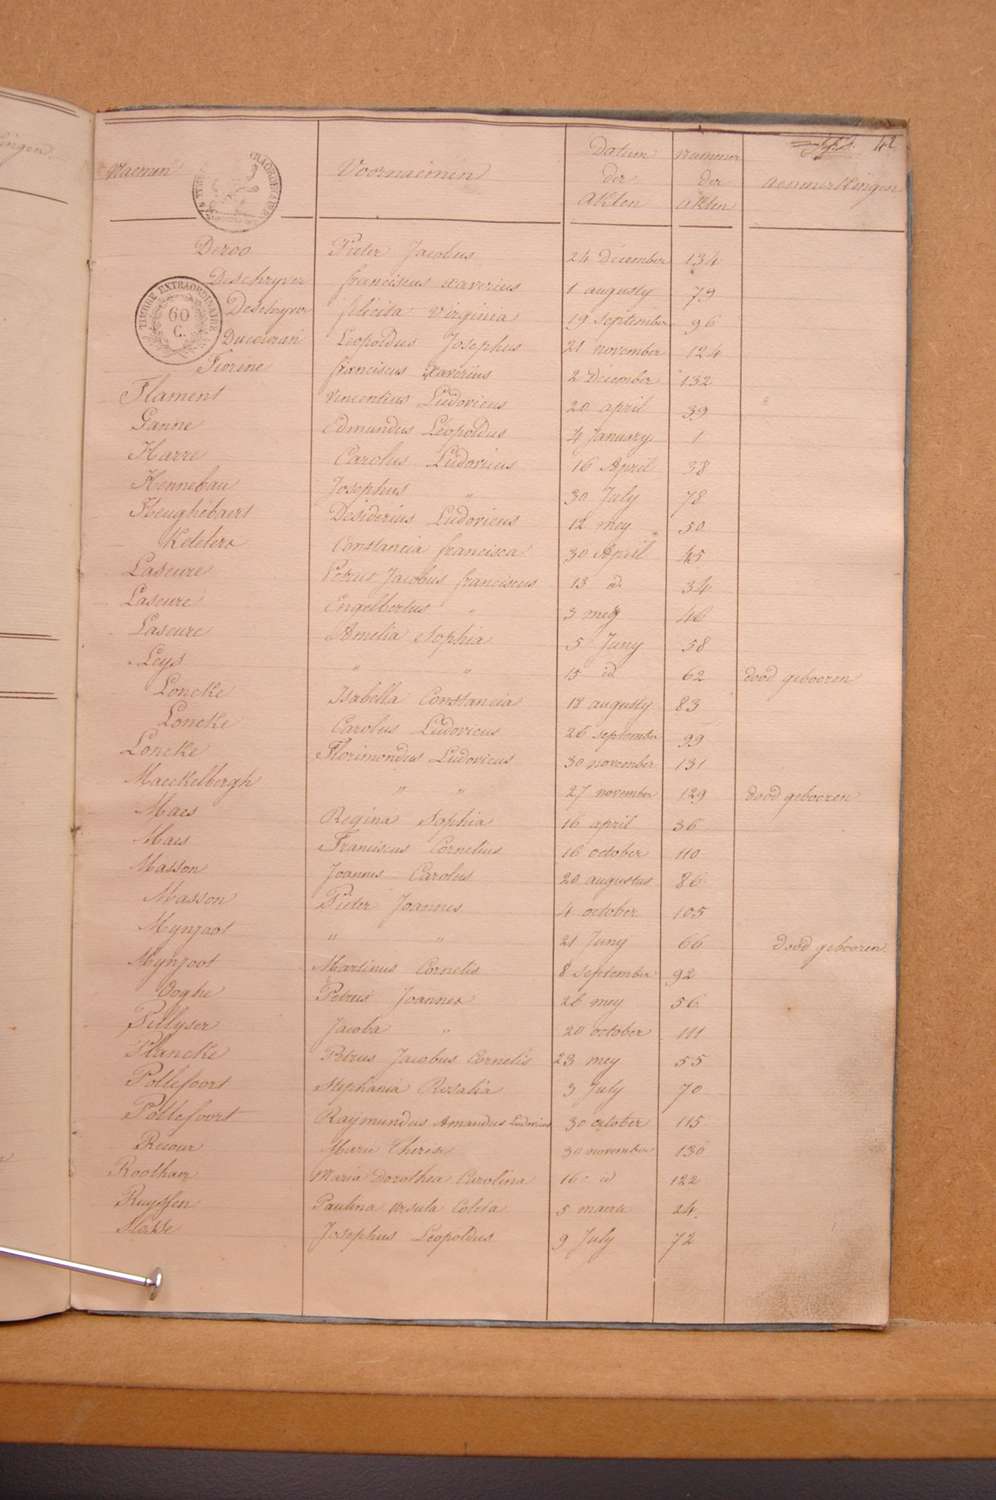 42
Naemen Voornaemen Datum der Akten Nummer der Akten Aenmerkingen
TIMBRE EXTRAORDINAIRE
60
C.
Deroo Pieter Jacobus 24 December 134
Deschryver franciscus xaverius 1 augusty 79
felicita virginia 19 september 96
Leopoldus Josephus 21 november 124
Fiorene franciscus xaverius 2 december 132
Flament Vincentius Ludovicus 20 april 39
Ganne Edmundus Leopoldus 4 January 1
Harre Carolus Ludovicus 16 April 38
Hennebau Josephus " 30 July 78
Desiderius Ludovicus 12 mey 50
Ketelers Constancia francisca 30 April 45
Laseure Petrus Jacobus franciscus 13 id 34
Laseure Engelbertus " 3 mey 46
Laseure Amelia Sophia 5 Juny 58
Leys " " 15 id 62 dood gebooren
Loncke Isabella Constancia 18 augusty 83
Loncke Carolus Ludovicus 26 september 99
Loncke Florimondus Ludovicus 30 november 131
Maeckelbergh " " 27 november 129 dood gebooren
Maes Regina Sophia 16 april 36
Maes Franciscus Cornelius 16 october 110
Masson Joannes Carolus 20 augustus 86
Masson Pieter Joannes 4 october 105
Mynjoot " " 21 Juny 66 dood gebooren
Mynjoot Martinus Cornelis 8 september 92
Ooghe Petrus Joannes 26 mey 56
Pillyser Jacoba " 20 october 111
Plancke Petrus Jacobus Cornelis 23 mey 55
Pollefoort Stephania Rosalia 3 July 70
Pollefoort Raymundus Amandus Ludovicus 30 october 115
Marie Therese 30 november 130
Roothaer Maria Dorothea Carolina 16 id 122
Ruyssen Paulina Ursula Coleta 5 maerte 24
Slosse Josephus Leopoldus 9 July 72